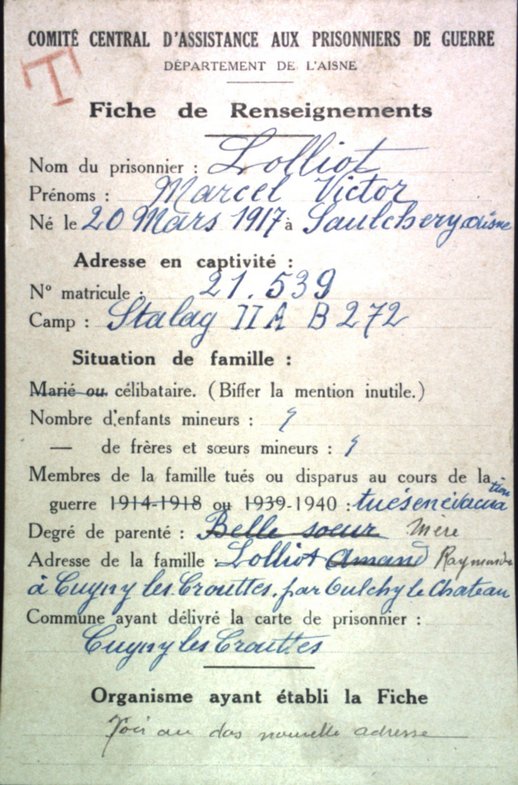 COMITÉ CENTRAL D'ASSISTANCE AUX PRISONNIERS DE GUERRE
DÉPARTEMENT DE L'AISNE
T
Fiche de Renseignements
Nom du prisonnier : Lolliot
Prénoms : Marcel Victor
Né le 20 Mars 1917 à Saulchery Aisne
Adresse en captivité :
N° matricule : 21.539
Camp : Stalag II A B 272
Situation de famille :
Marié ou célibataire. (Biffer la mention inutile.)
Nombre d'enfants mineurs :
— de frères et sœurs mineurs :
Membres de la famille tués ou disparus au cours de la
guerre 1914-1918 ou 1939-1940 : tués en évacuation
Degré de parenté : Belle soeur Mère
Adresse de la famille : Lolliot Amand Raymonde
à Cugny les Crouttes. par Oulchy le Chateau
Commune ayant délivré la carte de prisonnier :
Cugny les Crouttes
Organisme ayant établi la Fiche
Voir au dos nouvelle adresse